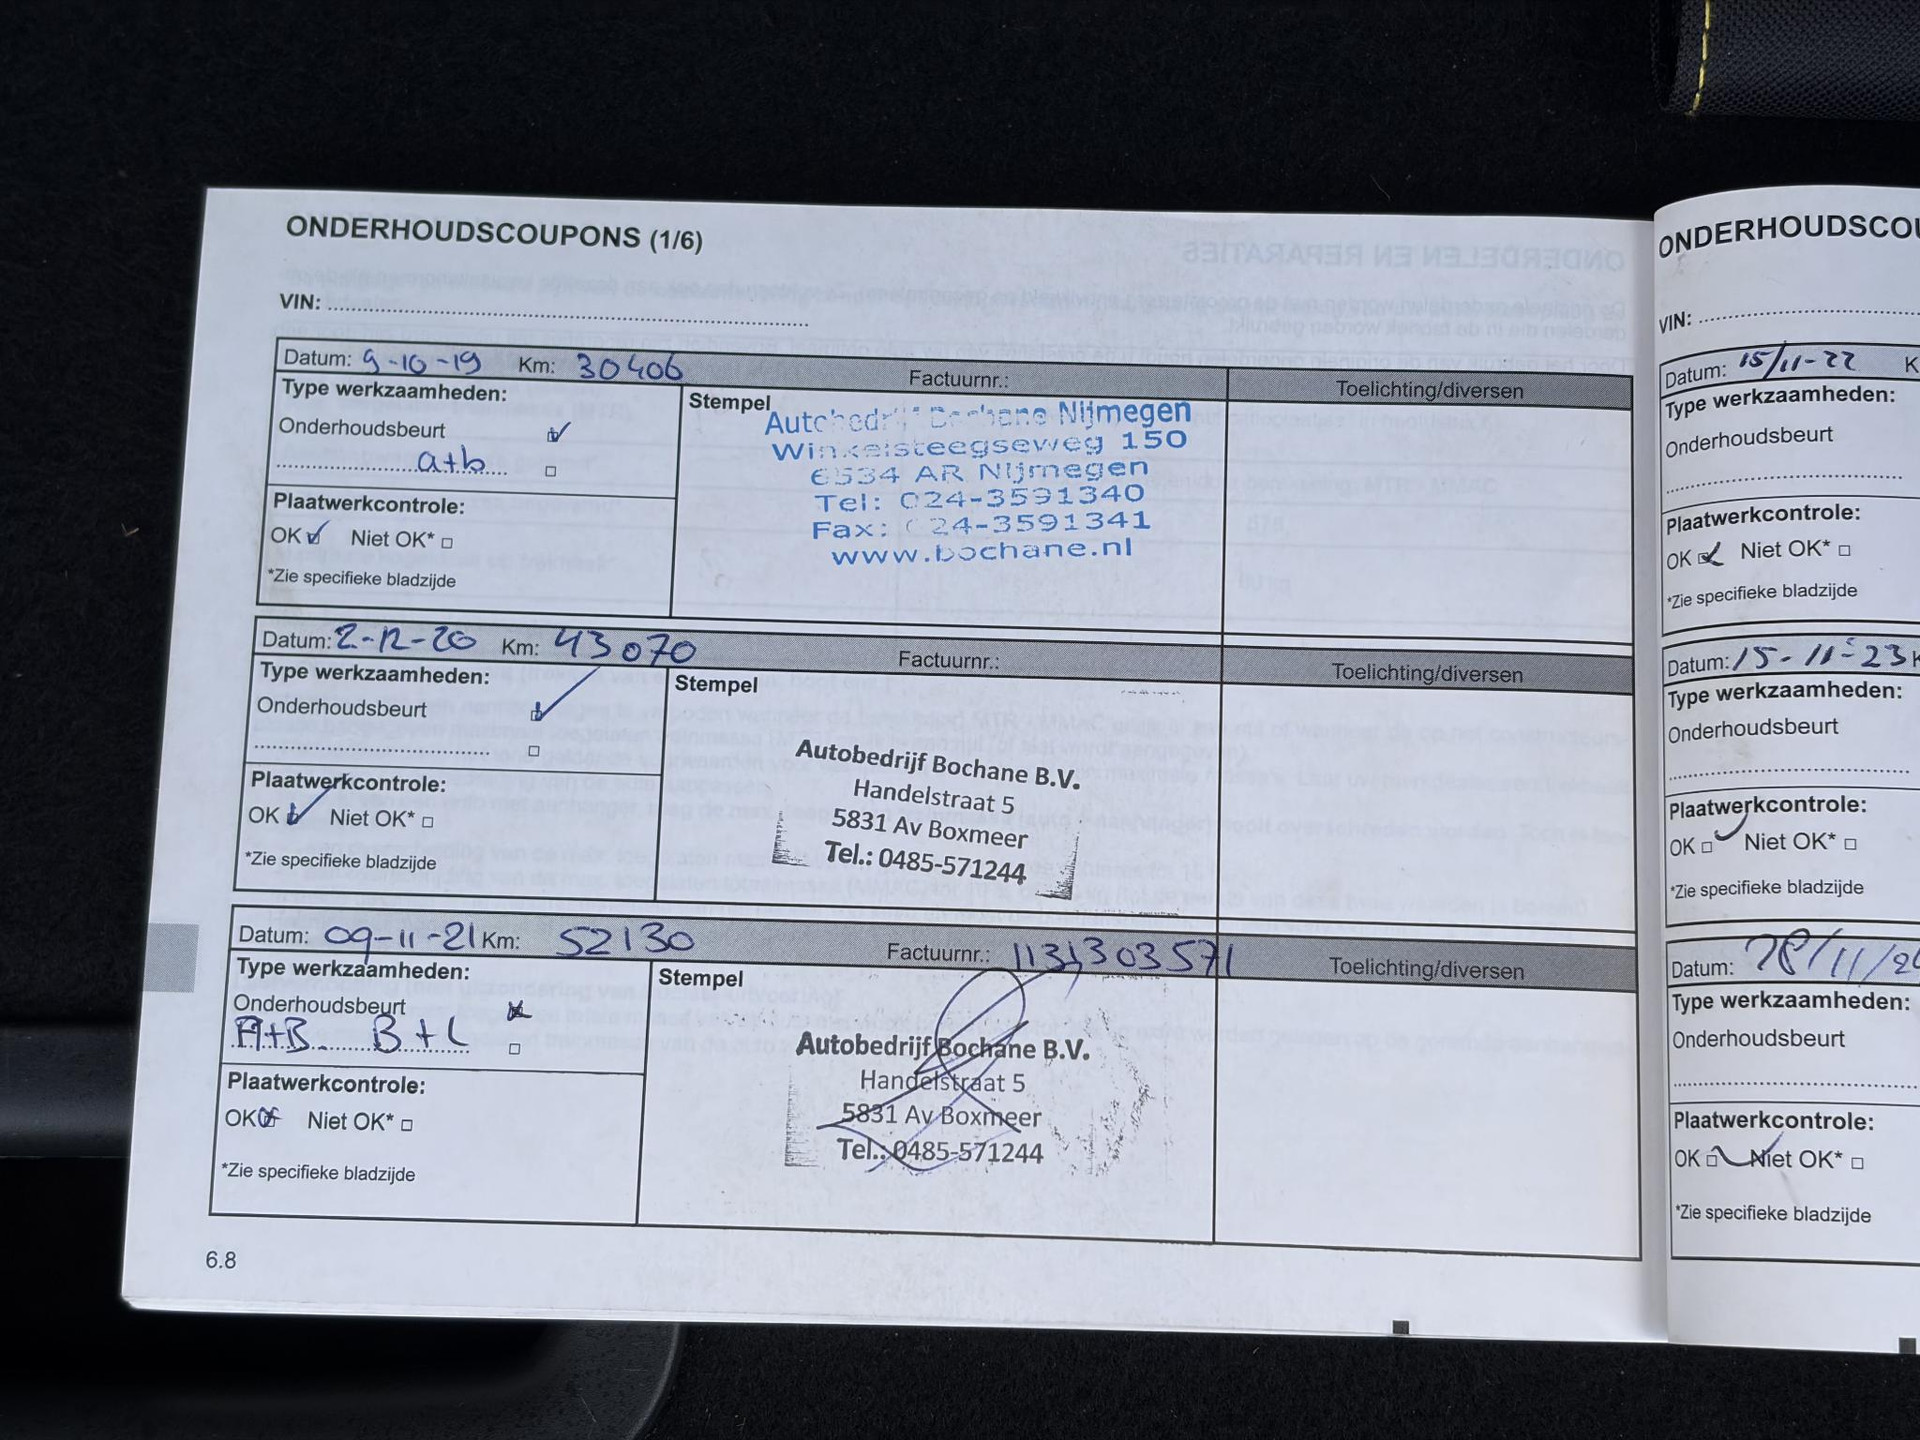 ONDERHOUDSCOUPONS (1/6)
VIN:
Datum: 9-10-19 Km: 30406 Factuurnr.: Toelichting/diversen
Type werkzaamheden: Stempel
Onderhoudsbeurt
a+b
Plaatwerkcontrole:
OK Niet OK*
*Zie specifieke bladzijde
Autobedrijf Bochane Nijmegen
Winkelsteegseweg 150
6534 AR Nijmegen
Tel: 024-3591340
Fax: 024-3591341
www.bochane.nl
Datum: 2-12-20 Km: 43070 Factuurnr.: Toelichting/diversen
Type werkzaamheden: Stempel
Onderhoudsbeurt
Plaatwerkcontrole:
OK Niet OK*
*Zie specifieke bladzijde
Autobedrijf Bochane B.V.
Handelstraat 5
5831 Av Boxmeer
Tel.: 0485-571244
Datum: 09-11-21 Km: 52130 Factuurnr.: 1131303571 Toelichting/diversen
Type werkzaamheden: Stempel
Onderhoudsbeurt
A+B B+L
Plaatwerkcontrole:
OK Niet OK*
*Zie specifieke bladzijde
Autobedrijf Bochane B.V.
Handelstraat 5
5831 Av Boxmeer
Tel.: 0485-571244
6.8
ONDERHOUDSCOU
VIN:
Datum: 15/11-22 K
Type werkzaamheden:
Onderhoudsbeurt
Plaatwerkcontrole:
OK Niet OK*
*Zie specifieke bladzijde
Datum: 15-11-23 K
Type werkzaamheden:
Onderhoudsbeurt
Plaatwerkcontrole:
OK Niet OK*
*Zie specifieke bladzijde
Datum: 28/11/2
Type werkzaamheden:
Onderhoudsbeurt
Plaatwerkcontrole:
OK Niet OK*
*Zie specifieke bladzijde